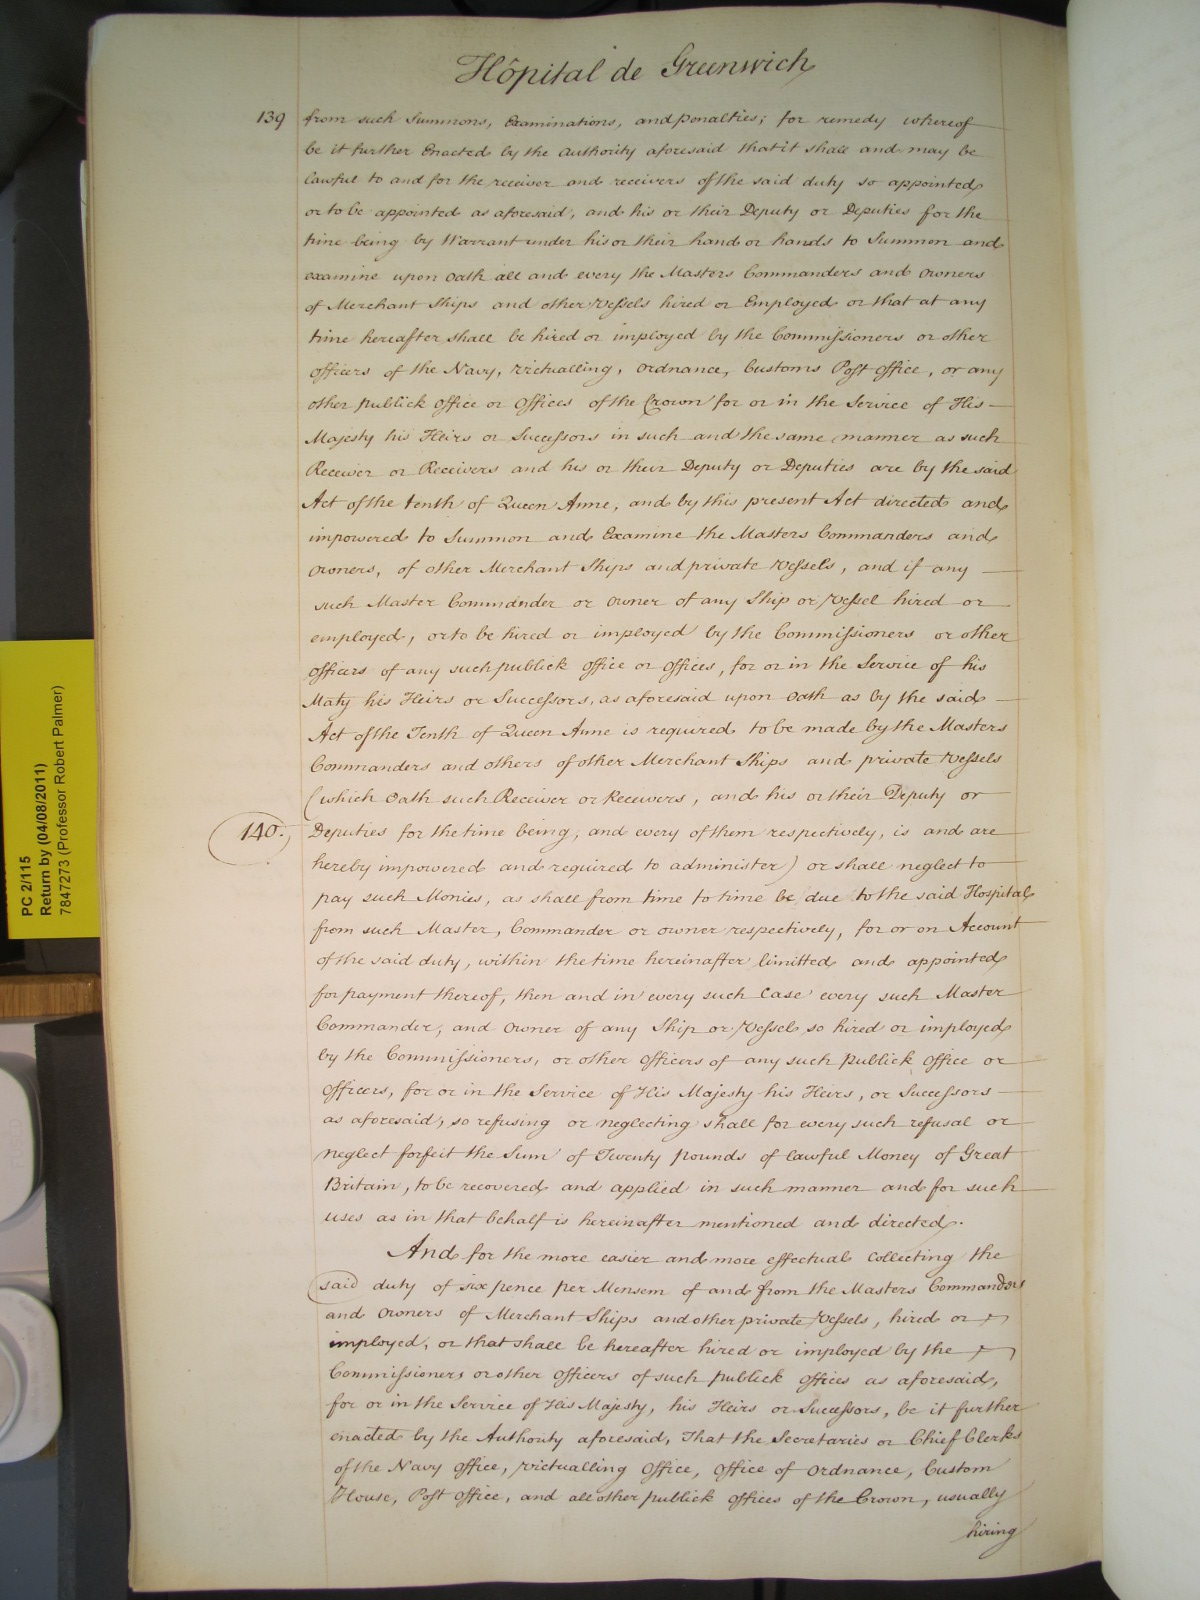 Hôpital de Greenwich
139 from such Summons, Examinations, and penalties; for remedy whereof
be it further Enacted by the Authority aforesaid that it shall and may be
lawful to and for the receiver and receivers of the said duty so appointed
or to be appointed as aforesaid, and his or their Deputy or Deputies for the
time being by Warrant under his or their hand or hands to Summon and
examine upon Oath all and every the Masters Commanders and owners
of Merchant Ships and other Vessels hired or Employed or that at any
time hereafter shall be hired or imployed by the Commissioners or other
officers of the Navy, victualling, ordnance, Customs Post office, or any
other publick office or Offices of the Crown for or in the Service of His
Majesty his Heirs or Successors in such and the same manner as such
Receiver or Receivers and his or their Deputy or Deputies are by the said
Act of the tenth of Queen Anne, and by this present Act directed and
impowered to Summon and Examine the Masters Commanders and
owners, of other Merchant Ships and private Vessels, and if any
such Master Commander or owner of any Ship or Vessel hired or
employed, or to be hired or imployed by the Commissioners or other
officers of any such publick office or offices, for or in the Service of his
Maty his Heirs or Successors, as aforesaid upon Oath as by the said
Act of the Tenth of Queen Anne is required to be made by the Masters
Commanders and others of other Merchant Ships and private Vessels
(which Oath such Receiver or Receivers, and his or their Deputy or
140. Deputies for the time being, and every of them respectively, is and are
hereby impowered and required to administer) or shall neglect to
pay such Monies, as shall from time to time be due to the said Hospital
from such Master, Commander or owner respectively, for or on Account
of the said duty, within the time hereinafter limitted and appointed
for payment thereof, then and in every such Case every such Master
Commander, and owner of any Ship or Vessel so hired or imployed
by the Commissioners, or other officers of any such publick office or
officers, for or in the Service of His Majesty his Heirs, or Successors
as aforesaid, so refusing or neglecting shall for every such refusal or
neglect forfeit the Sum of Twenty pounds of lawful Money of Great
Britain, to be recovered and applied in such manner and for such
uses as in that behalf is hereinafter mentioned and directed.
And for the more easier and more effectual collecting the
said duty of six pence per Mensem of and from the Masters Commanders
and owners of Merchant Ships and other private Vessels, hired or
imployed, or that shall be hereafter hired or imployed by the
Commissioners or other officers of such publick offices as aforesaid,
for or in the Service of His Majesty, his Heirs or Successors, be it further
enacted by the Authority aforesaid, That the Secretaries or Chief Clerks
of the Navy office, victualling Office, office of ordnance, Custom
House, Post office, and all other publick offices of the Crown, usually
hiring
PC 2/115
Return by (04/08/2011)
7847273 (Professor Robert Palmer)